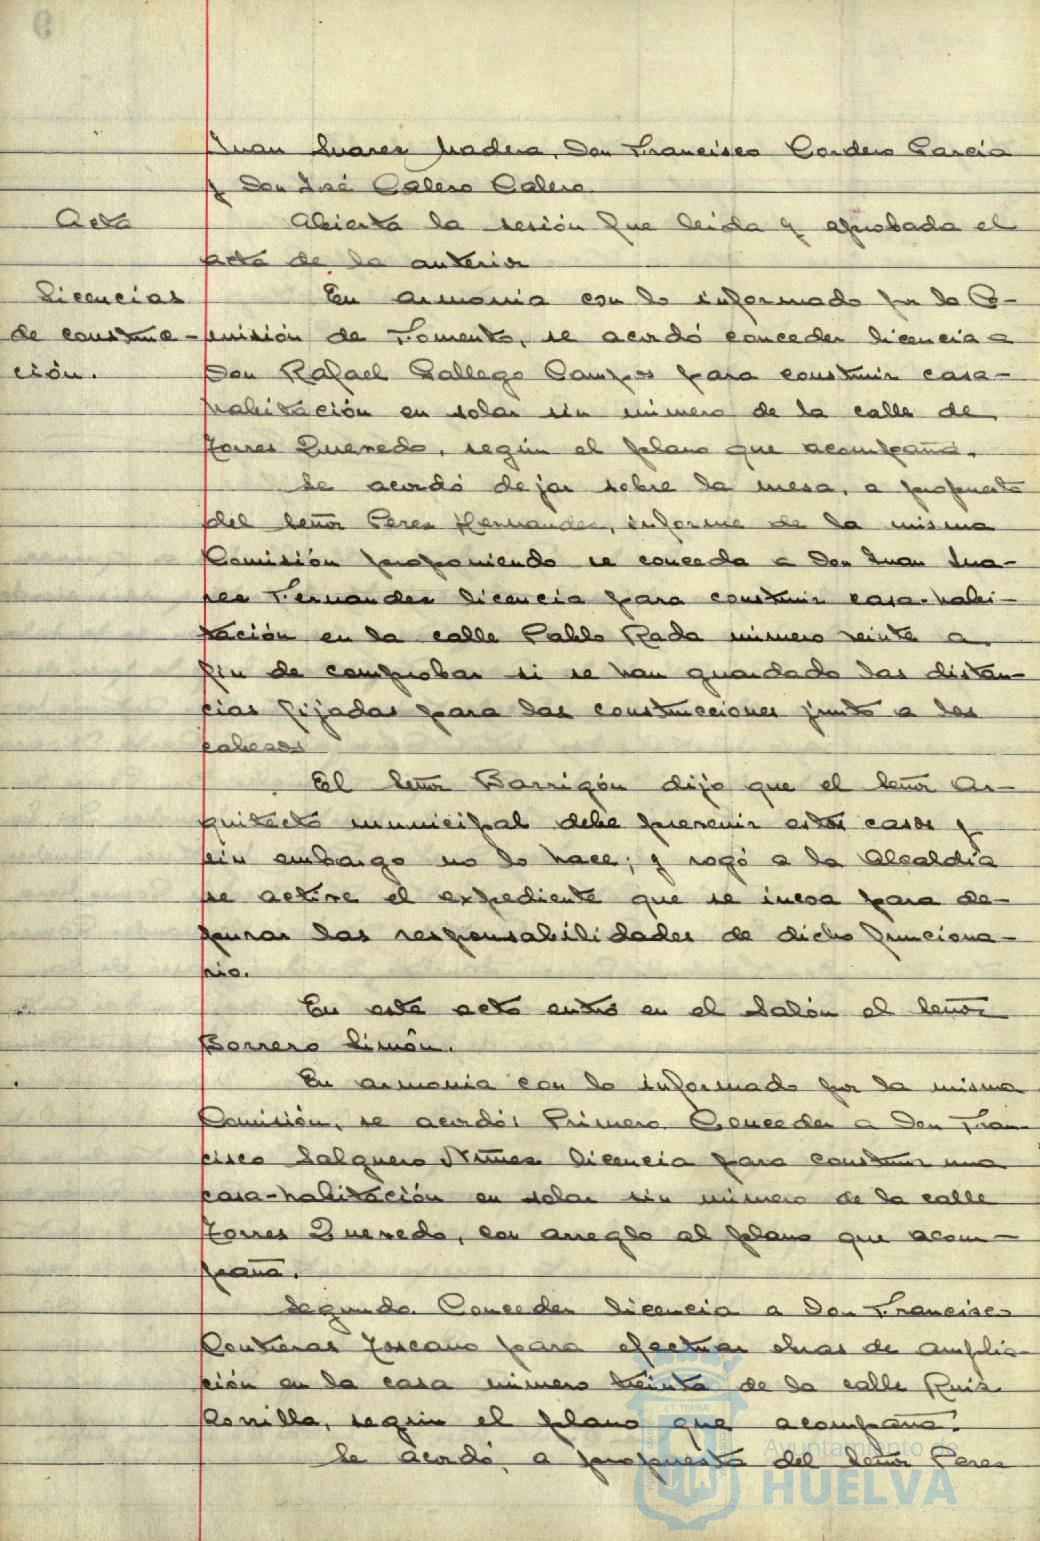 Juan Suarez Madera, Don Francisco Cordero Garcia
y Don José Calero Calero.
Acta
Abierta la sesión fue leida y aprobada el
acta de la anterior
Licencias
de construc-
ción.
En armonia con lo informado por la Co-
misión de Fomento, se acordó conceder licencia a
Don Rafael Gallego Campos para construir casa-
habitación en solar sin número de la calle de
Torres Quevedo, según el plano que acompaña.
Se acordó dejar sobre la mesa, a propuesta
del Señor Perez Hernandez, informe de la misma
Comisión proponiendo se conceda a Don Juan Sua-
rez Fernandez licencia para construir casa-habi-
tación en la calle Pablo Rada número veinte a
fin de comprobar si se han guardado las distan-
cias fijadas para las construcciones junto a los
cabezos
El Señor Barrigón dijo que el Señor Ar-
quitecto municipal debe prevenir estos casos y
sin embargo no lo hace; y rogó a la Alcaldía
se active el expediente que se incoa para de-
purar las responsabilidades de dicho funciona-
rio.
En este acto entró en el Salón el Señor
Borrero Limón.
En armonia con lo informado por la misma
Comisión, se acordó: Primero. Conceder a Don Fran-
cisco Salguero Núñez licencia para construir una
casa-habitación en solar sin número de la calle
Torres Quevedo, con arreglo al plano que acom-
paña.
Segundo. Conceder licencia a Don Francisco
Contreras Toscano para efectuar obras de amplia-
ción en la casa número treinta de la calle Ruiz
Zorrilla, según el plano que acompaña.
Se acordó, a propuesta del Señor Perez
ET TERRÆ
Ayuntamiento de
HUELVA